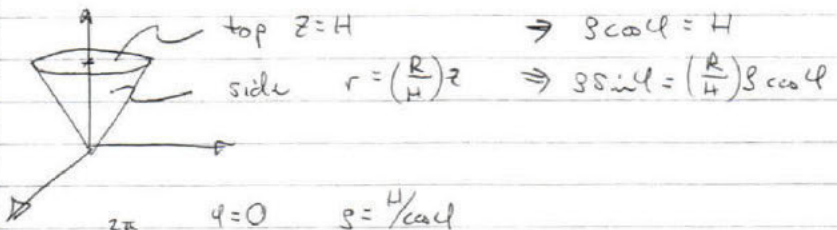 top z=H ⇒ ρcosφ = H
side r = (R/H)z ⇒ ρSinφ = (R/H)ρcosφ
2π φ=0 ρ= H/cosφ